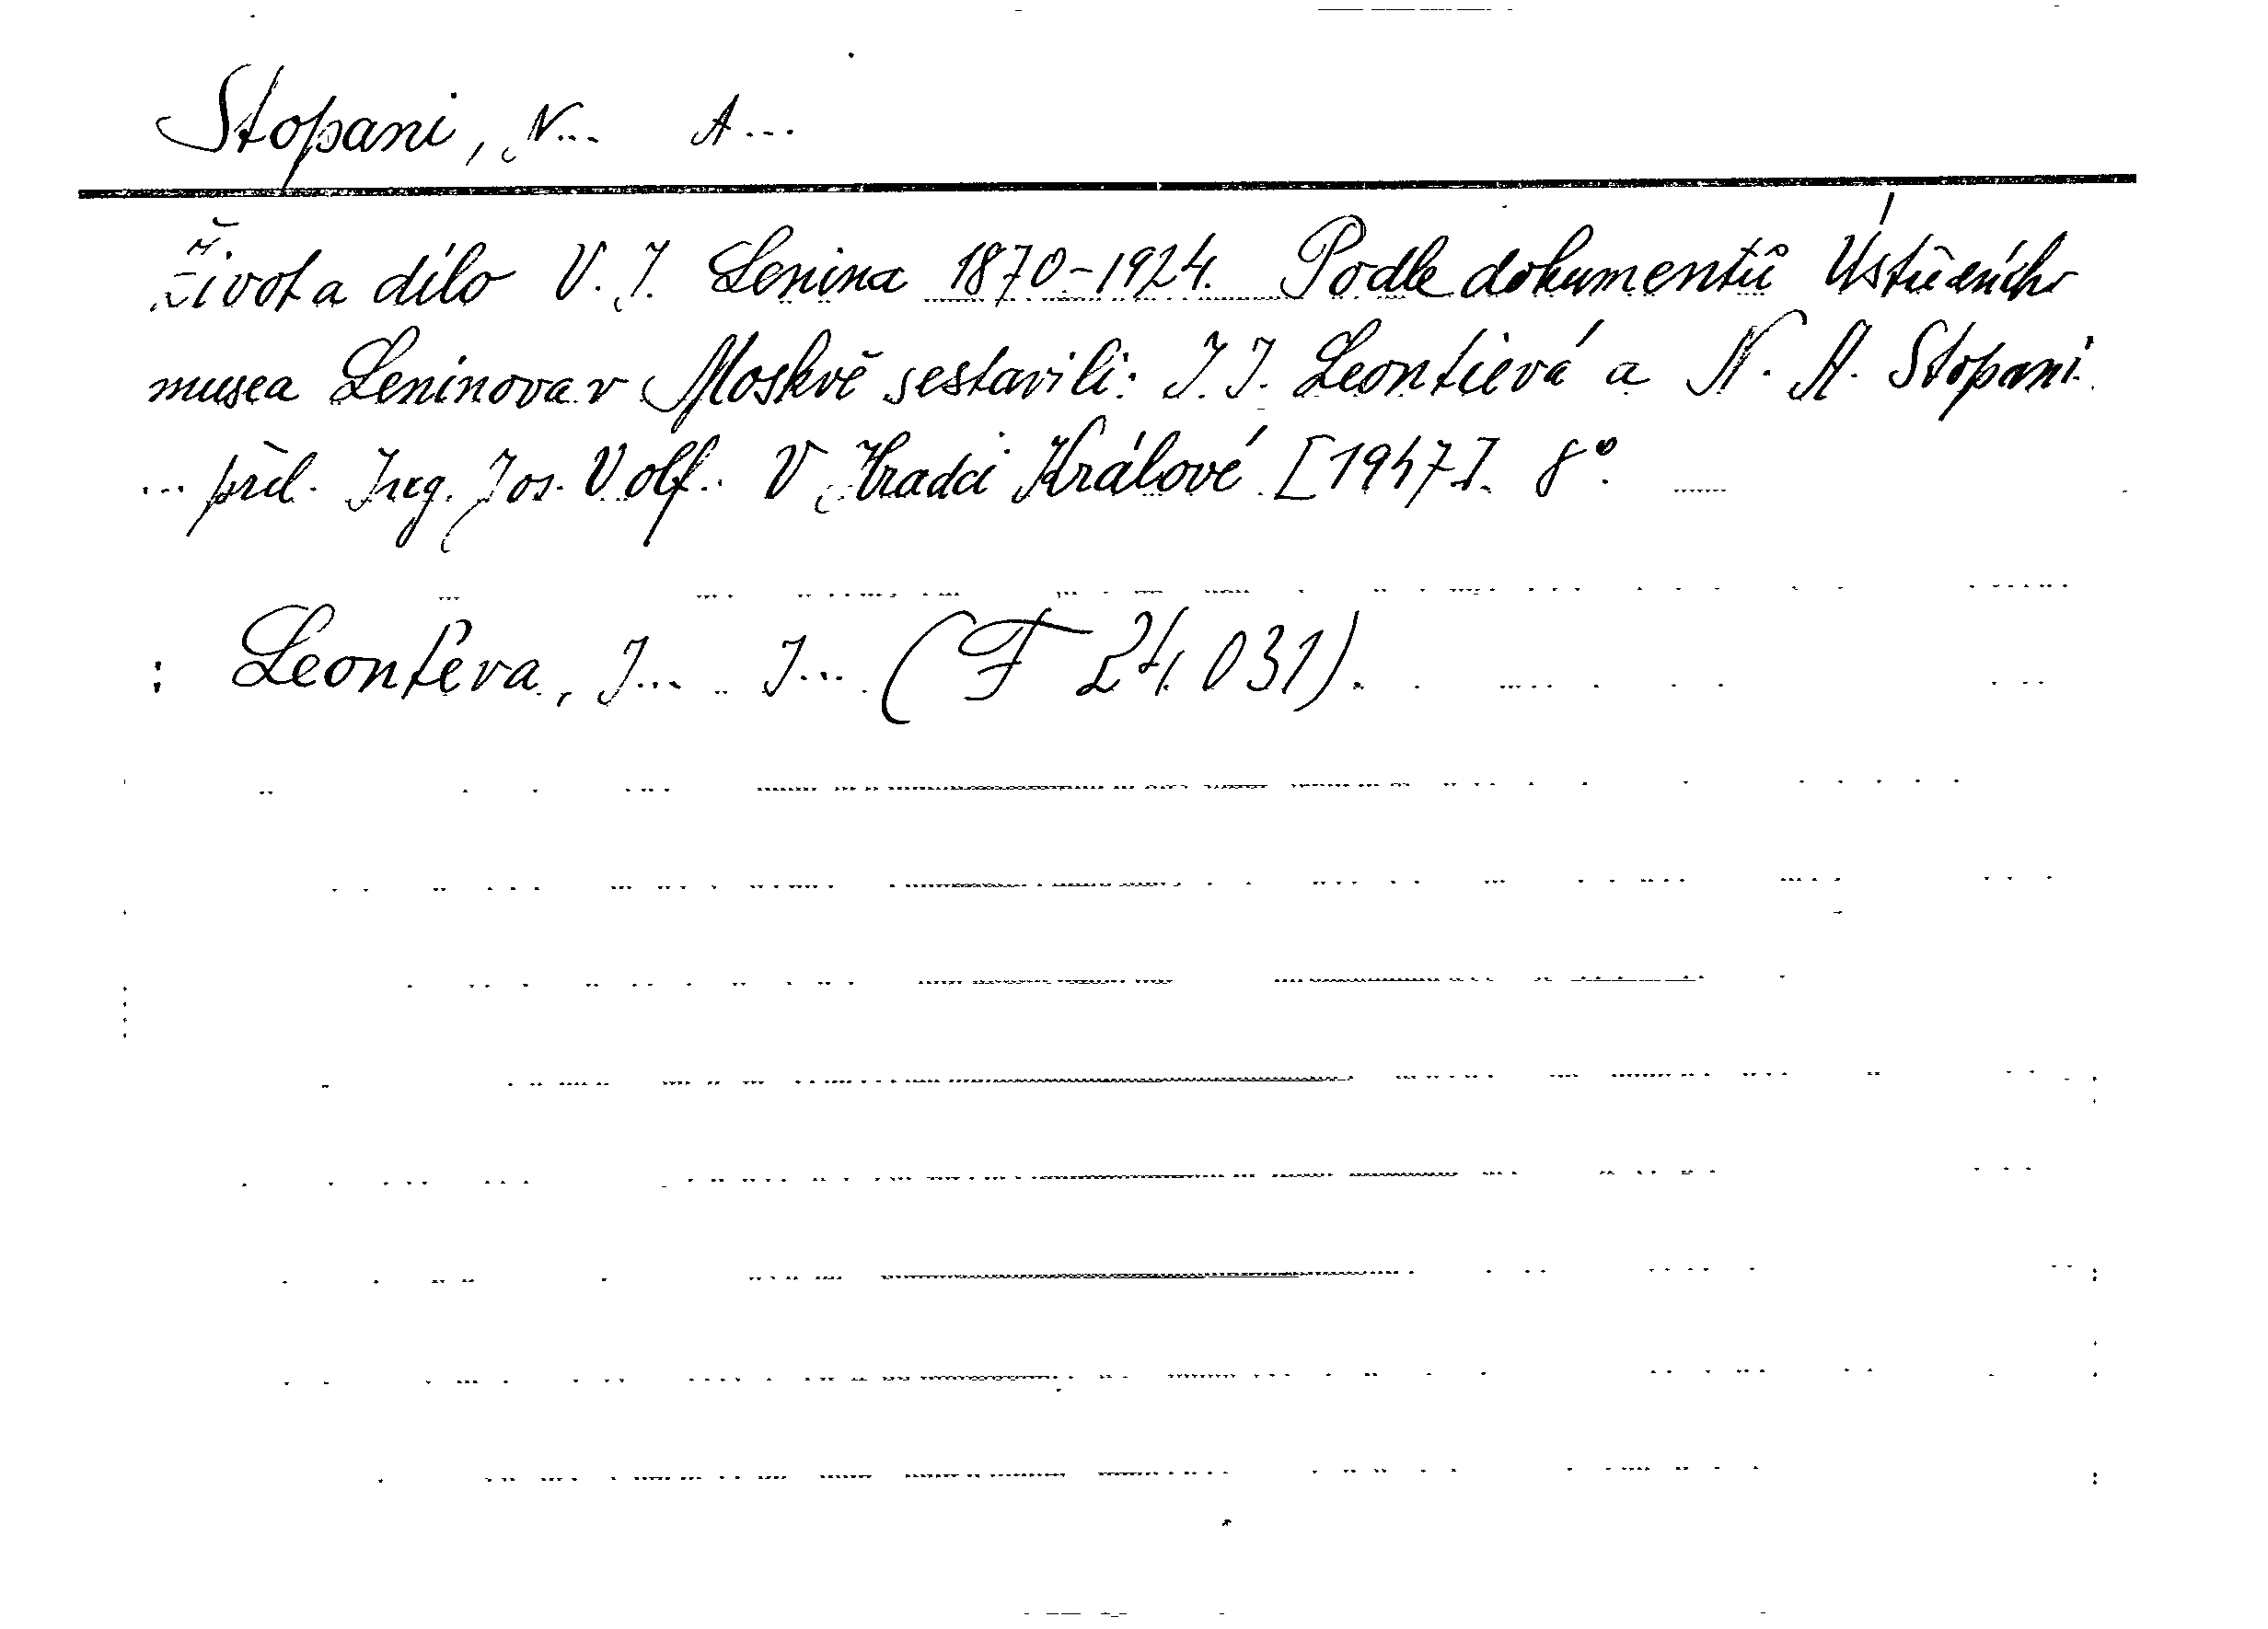 Stopani, N... A...
Život a dílo V. I. Lenina 1870-1924. Podle dokumentů Ústředního
musea Leninova v Moskvě sestavili: I. I. Leontievá a N. A. Stopani.
... přel. Ing. Jos. Volf. V Hradci Králové [1947]. 8°.
: Leontěva, I... I... (F 24.031).